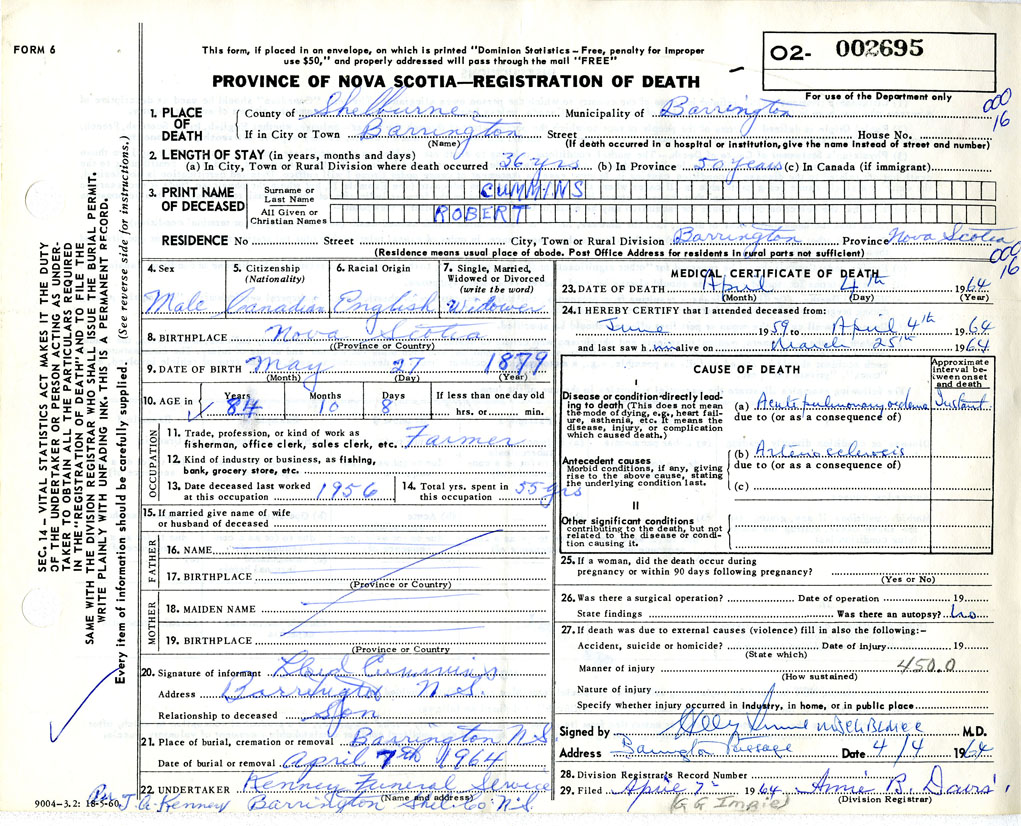 FORM 6
This form, if placed in an envelope, on which is printed "Dominion Statistics – Free, penalty for improper
use $50," and properly addressed will pass through the mail "FREE"
O2- 002695
PROVINCE OF NOVA SCOTIA—REGISTRATION OF DEATH
For use of the Department only
000
16
1. PLACE OF DEATH
County of Shelburne Municipality of Barrington
If in City or Town Barrington Street House No.
(Name) (If death occurred in a hospital or institution, give the name instead of street and number)
2. LENGTH OF STAY (in years, months and days)
(a) In City, Town or Rural Division where death occurred 36 yrs (b) In Province 50 years (c) In Canada (if immigrant)
3. PRINT NAME OF DECEASED
Surname or Last Name CUMMINS
All Given or Christian Names ROBERT
RESIDENCE No Street City, Town or Rural Division Barrington Province Nova Scotia
(Residence means usual place of abode. Post Office Address for residents in rural parts not sufficient)
000
16
4. Sex
Male
5. Citizenship
(Nationality)
Canadian
6. Racial Origin
English
7. Single, Married,
Widowed or Divorced
(write the word)
Widower
8. BIRTHPLACE Nova Scotia
(Province or Country)
9. DATE OF BIRTH May 27 1879
(Month) (Day) (Year)
10. AGE in
Years Months Days If less than one day old
84 10 8 hrs. or min.
OCCUPATION
11. Trade, profession, or kind of work as
fisherman, office clerk, sales clerk, etc. Farmer
12. Kind of industry or business, as fishing,
bank, grocery store, etc.
13. Date deceased last worked
at this occupation 1956
14. Total yrs. spent in
this occupation 55 yrs
15. If married give name of wife
or husband of deceased
FATHER
16. NAME
17. BIRTHPLACE
(Province or Country)
MOTHER
18. MAIDEN NAME
19. BIRTHPLACE
(Province or Country
20. Signature of informant Lloyd Cummings
Address Barrington N.S.
Relationship to deceased Son
21. Place of burial, cremation or removal Barrington N.S.
Date of burial or removal April 7th 1964
22. UNDERTAKER Kenney Funeral Service
(Name and address)
Per J. A. Kenney Barrington Shel. Co. N.S.
9004-3.2: 18-5-60.
MEDICAL CERTIFICATE OF DEATH
23. DATE OF DEATH April 4th 1964
(Month) (Day) (Year)
24. I HEREBY CERTIFY that I attended deceased from:
June 1959 to April 4th 1964
and last saw him alive on March 25th 1964
CAUSE OF DEATH
Approximate
interval be-
tween onset
and death
I
Disease or condition directly lead-
ing to death (This does not mean
the mode of dying, e.g., heart fail-
ure, asthenia, etc. It means the
disease, injury, or complication
which caused death.)
(a) Acute pulmonary oedema Instant
due to (or as a consequence of)
Antecedent causes
Morbid conditions, if any, giving
rise to the above cause, stating
the underlying condition last.
(b) Arteriosclerosis
due to (or as a consequence of)
(c)
II
Other significant conditions
contributing to the death, but not
related to the disease or condi-
tion causing it.
25. If a woman, did the death occur during
pregnancy or within 90 days following pregnancy?
(Yes or No)
26. Was there a surgical operation? Date of operation 19
State findings Was there an autopsy? No
27. If death was due to external causes (violence) fill in also the following:–
Accident, suicide or homicide? Date of injury 19
(State which)
Manner of injury 450.0
(How sustained)
Nature of injury
Specify whether injury occurred in industry, in home, or in public place
Signed by M.D.
Address Barrington Passage Date 4/4 1964
28. Division Registrar's Record Number
29. Filed April 7 1964 Annie B. Davis
(Division Registrar)
SEC. 14 – VITAL STATISTICS ACT MAKES IT THE DUTY
OF THE UNDERTAKER OR PERSON ACTING AS UNDER-
TAKER TO OBTAIN ALL THE PARTICULARS REQUIRED
IN THE "REGISTRATION OF DEATH" AND TO FILE THE
SAME WITH THE DIVISION REGISTRAR WHO SHALL ISSUE THE BURIAL PERMIT.
WRITE PLAINLY WITH UNFADING INK. THIS IS A PERMANENT RECORD.
Every item of information should be carefully supplied. (See reverse side for instructions.)